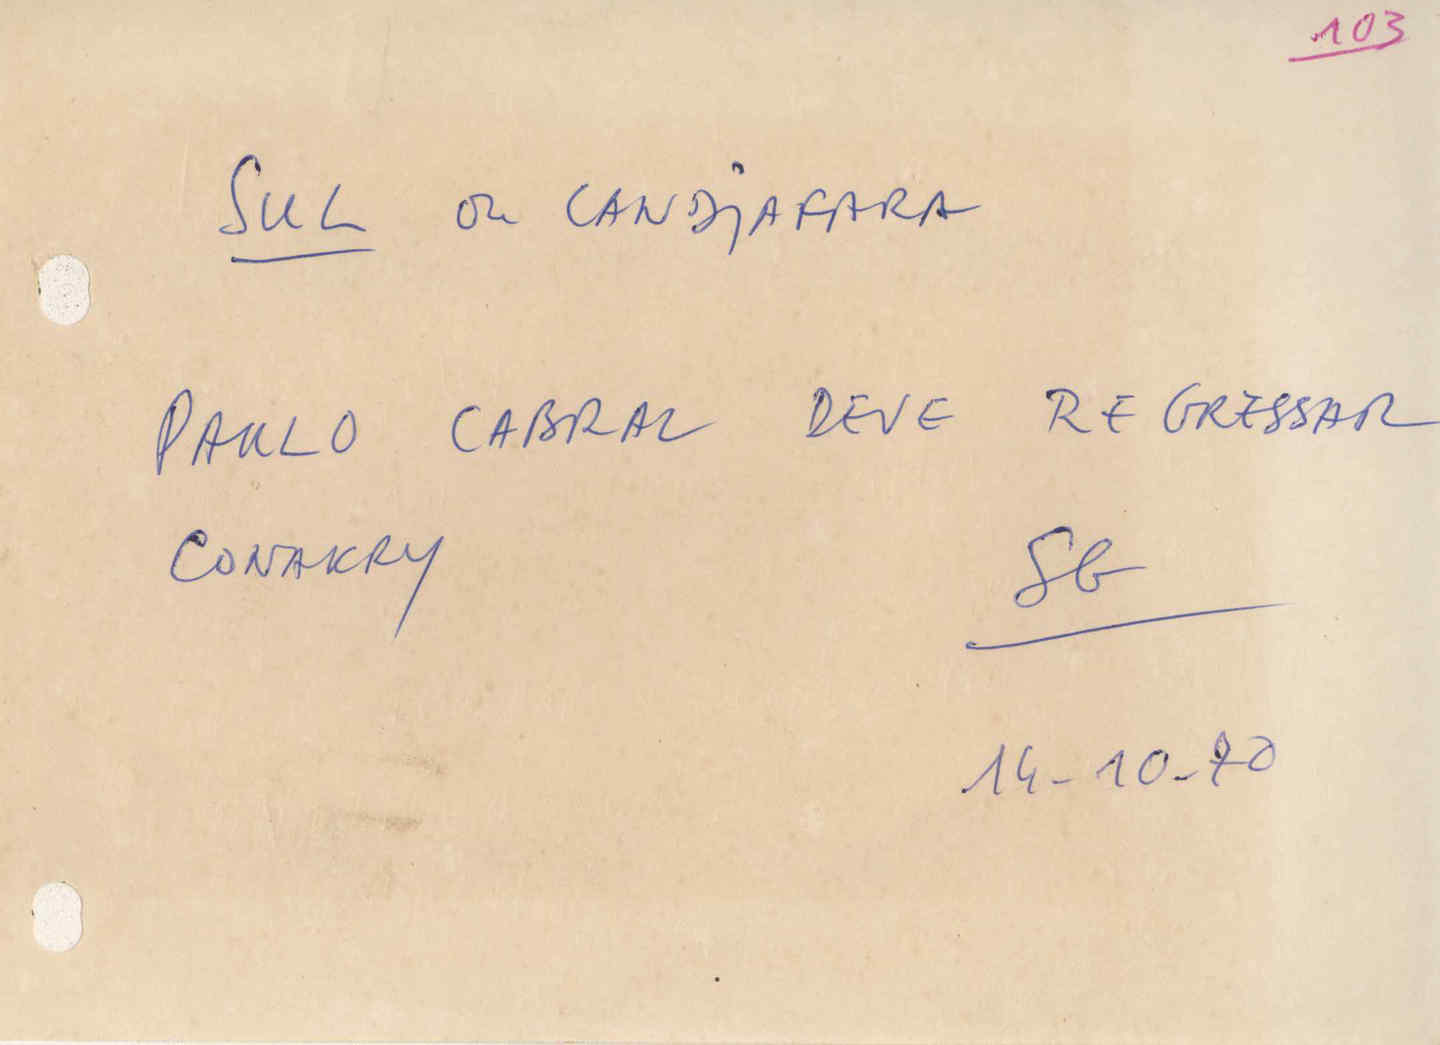 103
SUL ou CANDJAFARA
PAULO CABRAL DEVE REGRESSAR
CONAKRY
SG
14-10-70